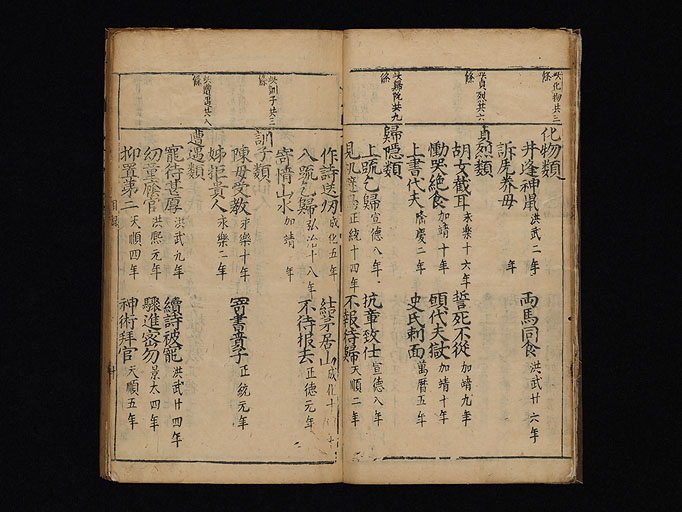 共化物共三條
化物類
井逢神鼠 洪武二年
両馬同食 洪武廿六年
訴虎养母 年
共貞烈共六條
貞烈類
胡女截耳 永樂十六年
誓死不從 加靖九年
慟哭絶食 加靖十年
頭代夫獄 加靖十年
上書代夫 隆慶二年
史氏刺面 萬暦五年
共歸隠共九條
歸隠類
上疏乞歸 宣德八年
抗章致仕 宣德八年
見机 正統十四年
不報待歸 天順二年
作詩送 成化五年
結茅居山 成化十 年
八疏乞歸 弘治十八年
不待报去 正德元年
寄情山水 加靖 年
共訓子共三條
訓子類
陳母受教 永樂十年
詈書責子 正統元年
姊拒貴人 永樂二年
共遭遇共八條
遭遇類
寵待甚厚 洪武九年
續詩被寵 洪武廿四年
幼童廕官 洪熙元年
驟進密勿 景太四年
抑置第二 天順四年
神術拜官 天順五年
目録
十